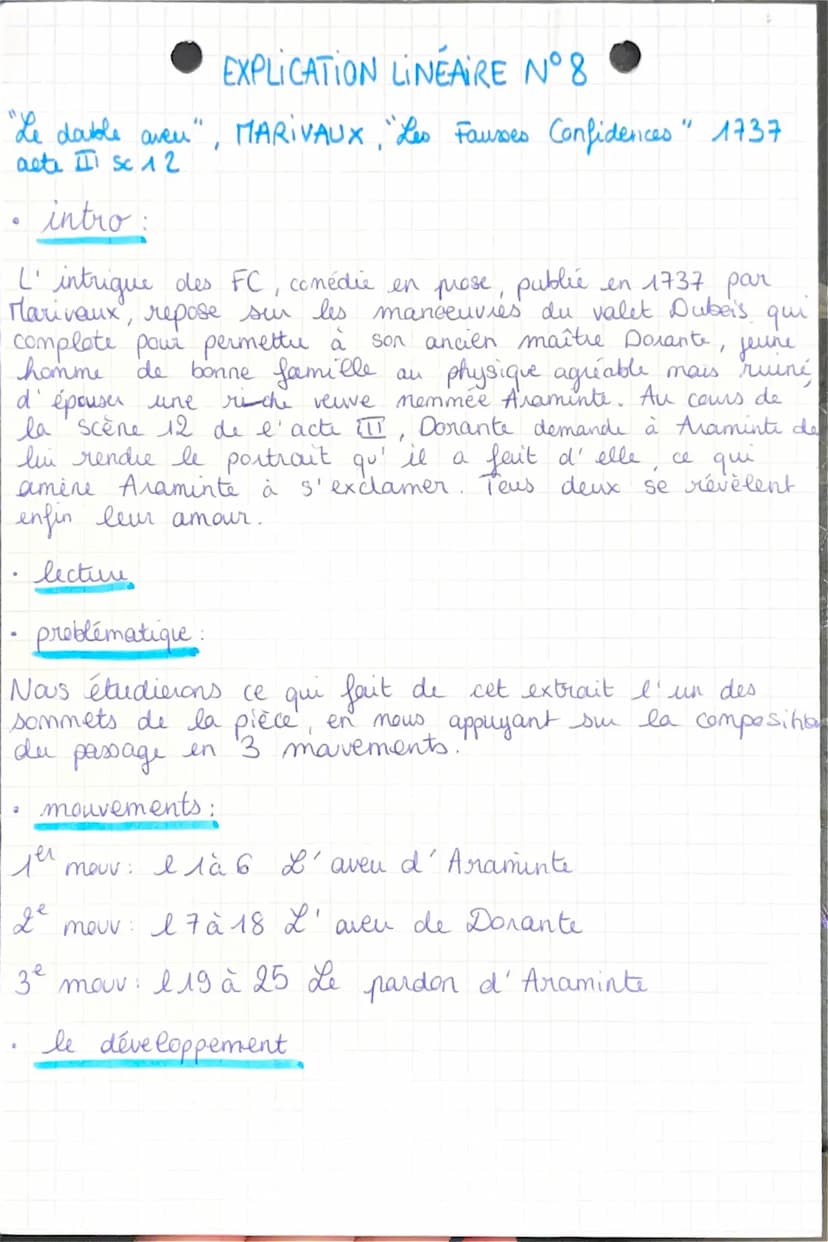 EXPLICATION LINÉAIRE N°8
"Le double aveu", MARIVAUX, "Les Fausses Confidences" 1737
acte III sc 12
• intro :
L'intrigue des FC, comédie en prose, publié en 1737 par
Marivaux, repose sur les manoeuvres du valet Dubois qui
complote pour permettre à son ancien maître Dorante, jeune
homme de bonne famille au physique agréable mais ruiné,
d'épouser une riche veuve nommée Araminte. Au cours de
la scène 12 de l'acte III, Dorante demande à Araminte de
lui rendre le portrait qu'il a fait d'elle, ce qui
amène Araminte à s'exclamer. Tous deux se révèlent
enfin leur amour.
• lecture
• problématique :
Nous étudierons ce qui fait de cet extrait l'un des
sommets de la pièce, en nous appuyant sur la composition
du passage en 3 mouvements.
• mouvements :
1er mouv : l 1 à 6 L'aveu d'Araminte
2e mouv : l 7 à 18 L'aveu de Dorante
3e mouv : l 19 à 25 Le pardon d'Araminte
• le développement